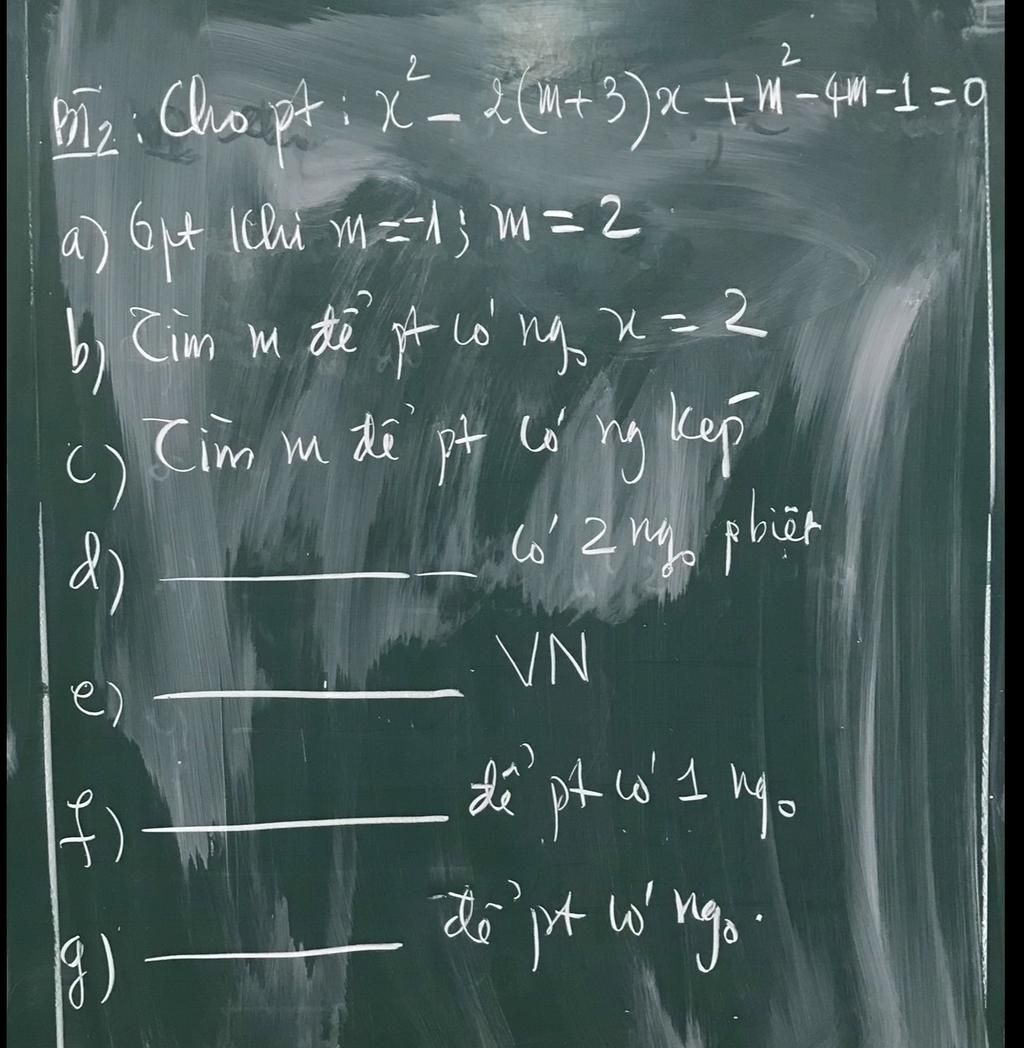 BT2: Cho pt: x² - 2(m+3)x + m² - 4m - 1 = 0
a) Gpt khi m = -1; m = 2
b) Tìm m để pt có ngo x = 2
c) Tìm m để pt có ng kép
d) ——— có 2 ngo pbiệt
e) ——— VN
f) ——— để pt có 1 ngo
g) ——— để pt có ngo.